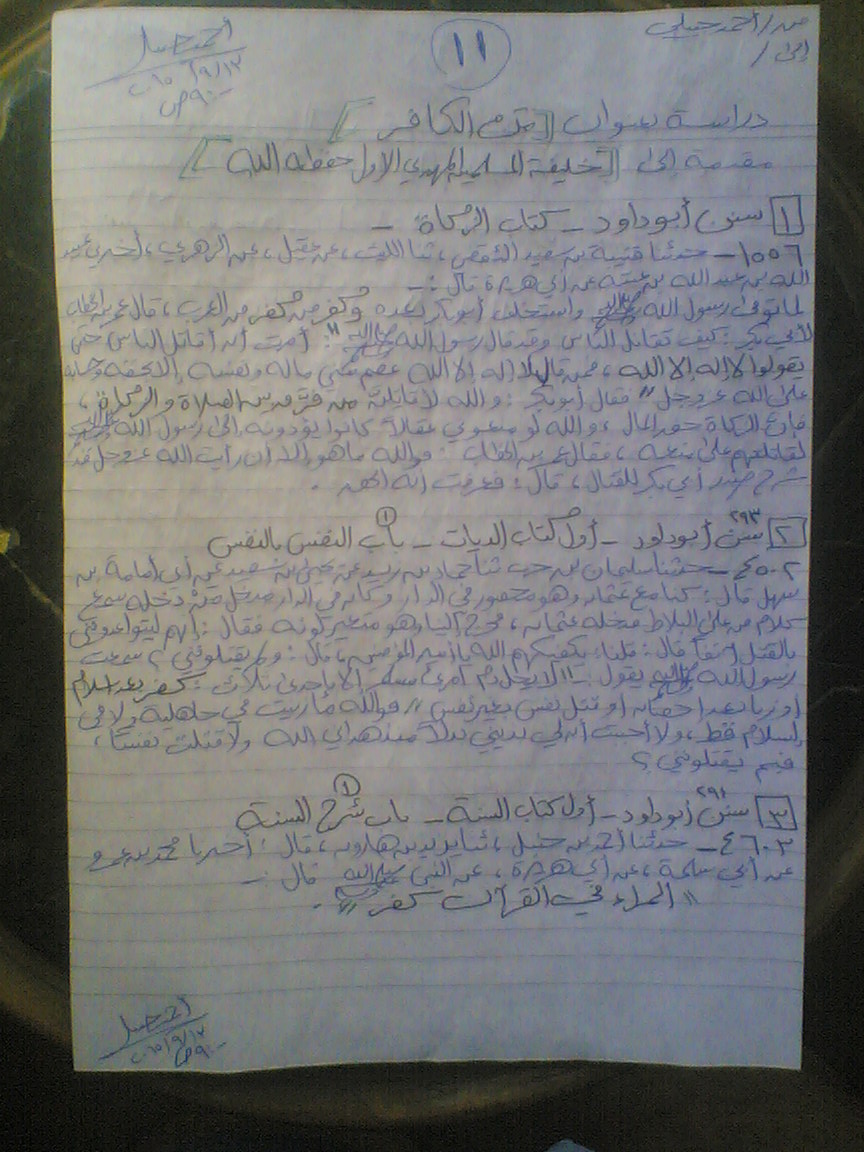 من / أحمد حنبلي
إلى /
١١
أحمد حنبلي
دراسة بعنوان [[ الكافر ]]
مقدمة إلى [[ خليفة المسلمين المهدي الأول حفظه الله ]]
١ سنن أبو داود - كتاب الزكاة -
١٥٥٦ - حدثنا قتيبة بن سعيد الثقفي، ثنا الليث، عن عقيل، عن الزهري، أخبرني عبيد
الله بن عبد الله بن عتبة عن أبي هريرة قال :-
لما توفى رسول الله ﷺ واستخلف أبو بكر بعده وكفر من كفر من العرب، قال عمر بن الخطاب
لأبي بكر: كيف تقاتل الناس وقد قال رسول الله ﷺ : "أمرت أن أقاتل الناس حتى
يقولوا لا إله إلا الله، فمن قال لا إله إلا الله عصم مني ماله ونفسه إلا بحقه وحسابه
على الله عز وجل" فقال أبو بكر: والله لأقاتلن من فرق بين الصلاة والزكاة،
فإن الزكاة حق المال، والله لو منعوني عقالاً كانوا يؤدونه إلى رسول الله ﷺ
لقاتلتهم على منعه، فقال عمر بن الخطاب: فوالله ما هو إلا أن رأيت الله عز وجل قد
شرح صدر أبي بكر للقتال، قال: فعرفت أنه الحق.
٢٩٣ ١
٢ سنن أبو داود - أول كتاب الديات - باب النفس بالنفس
٤٥٠٢ - حدثنا سليمان بن حرب ثنا حماد بن زيد عن يحيى بن سعيد عن أبي أمامة بن
سهل قال: كنا مع عثمان وهو محصور في الدار وكان في الدار مدخل من دخله سمع
كلام من على البلاط فدخله عثمان، فخرج إلينا وهو متغير لونه فقال: إنهم ليتواعدونني
بالقتل آنفاً قال: قلنا: يكفيكهم الله يا أمير المؤمنين، قال: ولم يقتلونني؟ سمعت
رسول الله ﷺ يقول: "لا يحل دم امرئ مسلم إلا بإحدى ثلاث: كفر بعد إسلام
أو زنا بعد إحصان أو قتل نفس بغير نفس" فوالله ما زنيت في جاهلية ولا في
إسلام قط، ولا أحببت أن لي بديني بدلاً منذ هداني الله ولا قتلت نفساً،
فبم يقتلونني؟
٢٩١ ١
٣ سنن أبو داود - أول كتاب السنة - باب شرح السنة
٤٦٠٣ - حدثنا أحمد بن حنبل، ثنا يزيد بن هارون، قال: أخبرنا محمد بن عمرو
عن أبي سلمة، عن أبي هريرة، عن النبي ﷺ قال :-
"المراء في القرآن كفر".
أحمد حنبلي